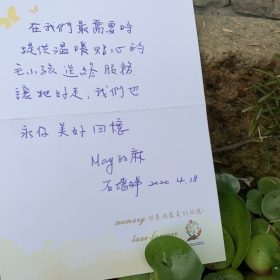 在我們最需要時
提供溫暖貼心的
毛小孩送終服務
讓牠好走，我們也
永存美好回憶
May的麻
2020.4.18
memory 你是我最美的回憶!
love forever